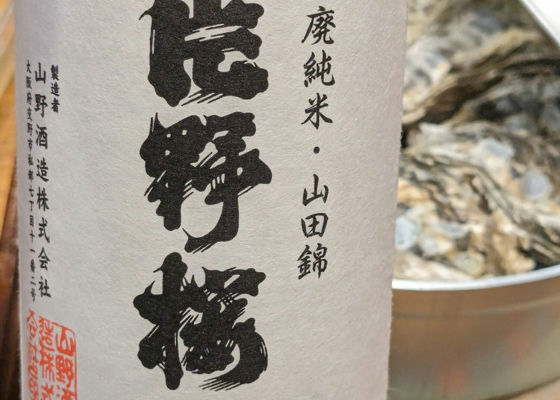 廃純米・山田錦
片野桜
製造者
山野酒造株式会社
大阪府交野市私部七丁目十一番二号
山野酒
造株式
会社